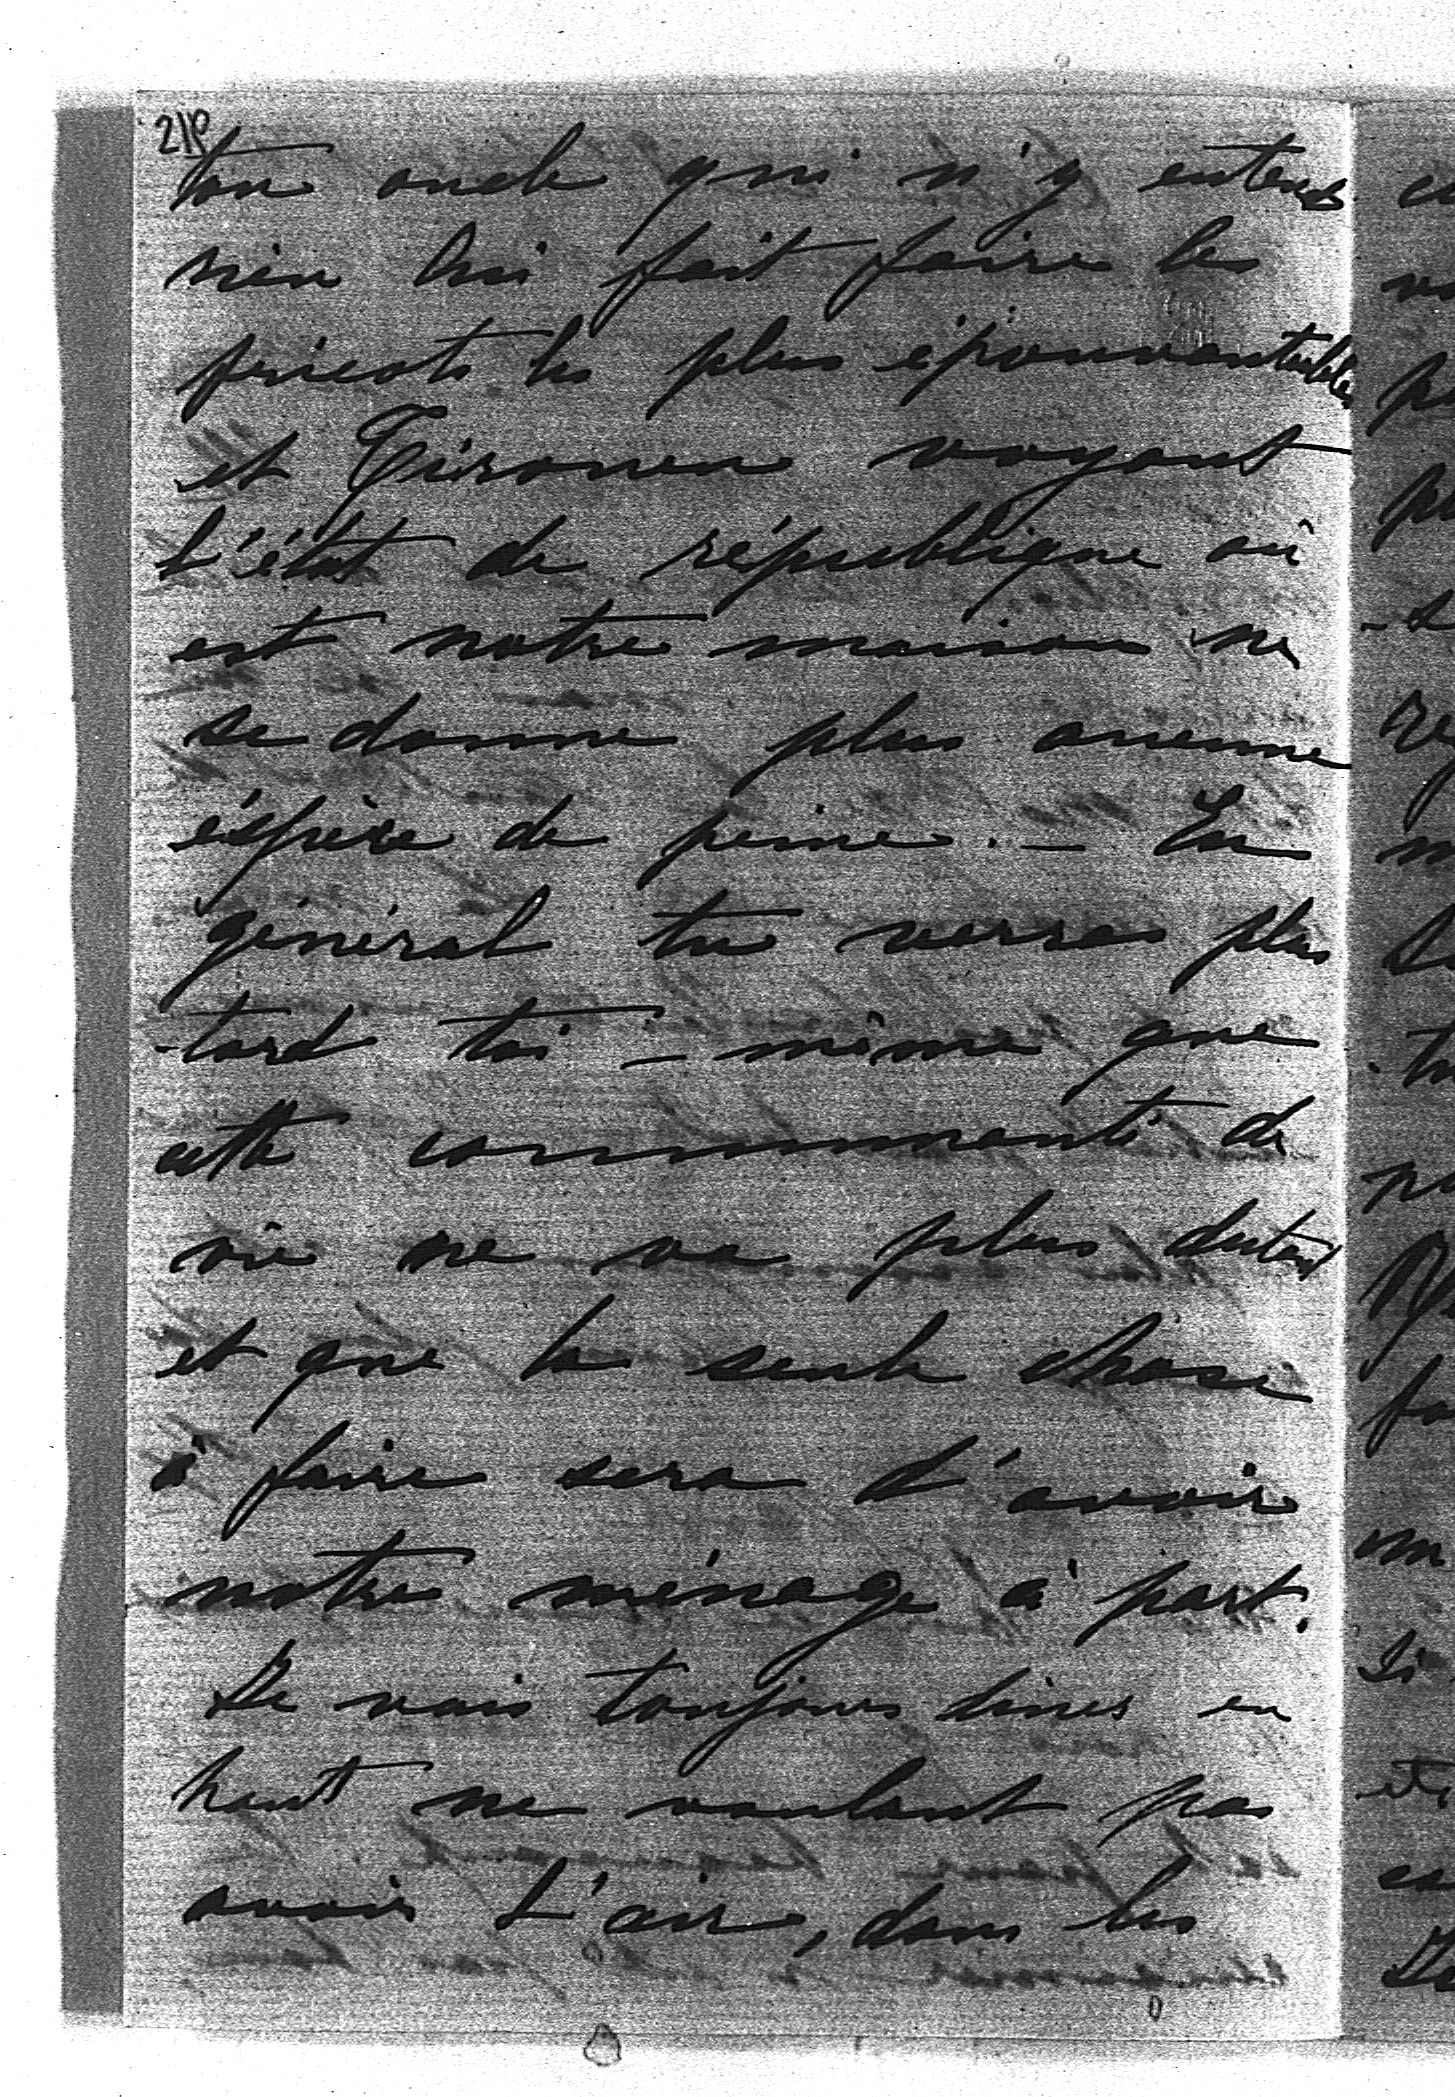 219
ton oncle qui n'y entend
rien lui fait faire les
fricots les plus épouvantables
et voyant
l'état de république où
est notre maison ne
se donne plus aucune
éspèce de peine. — En
général tu verras plus
tard toi-même que
cette communauté de
vie ne va plus du tout
et que la seule chose
à faire sera d'avoir
notre ménage à part.
Je vais toujours dîner en
haut ne voulant pas
avoir l'air, dans les